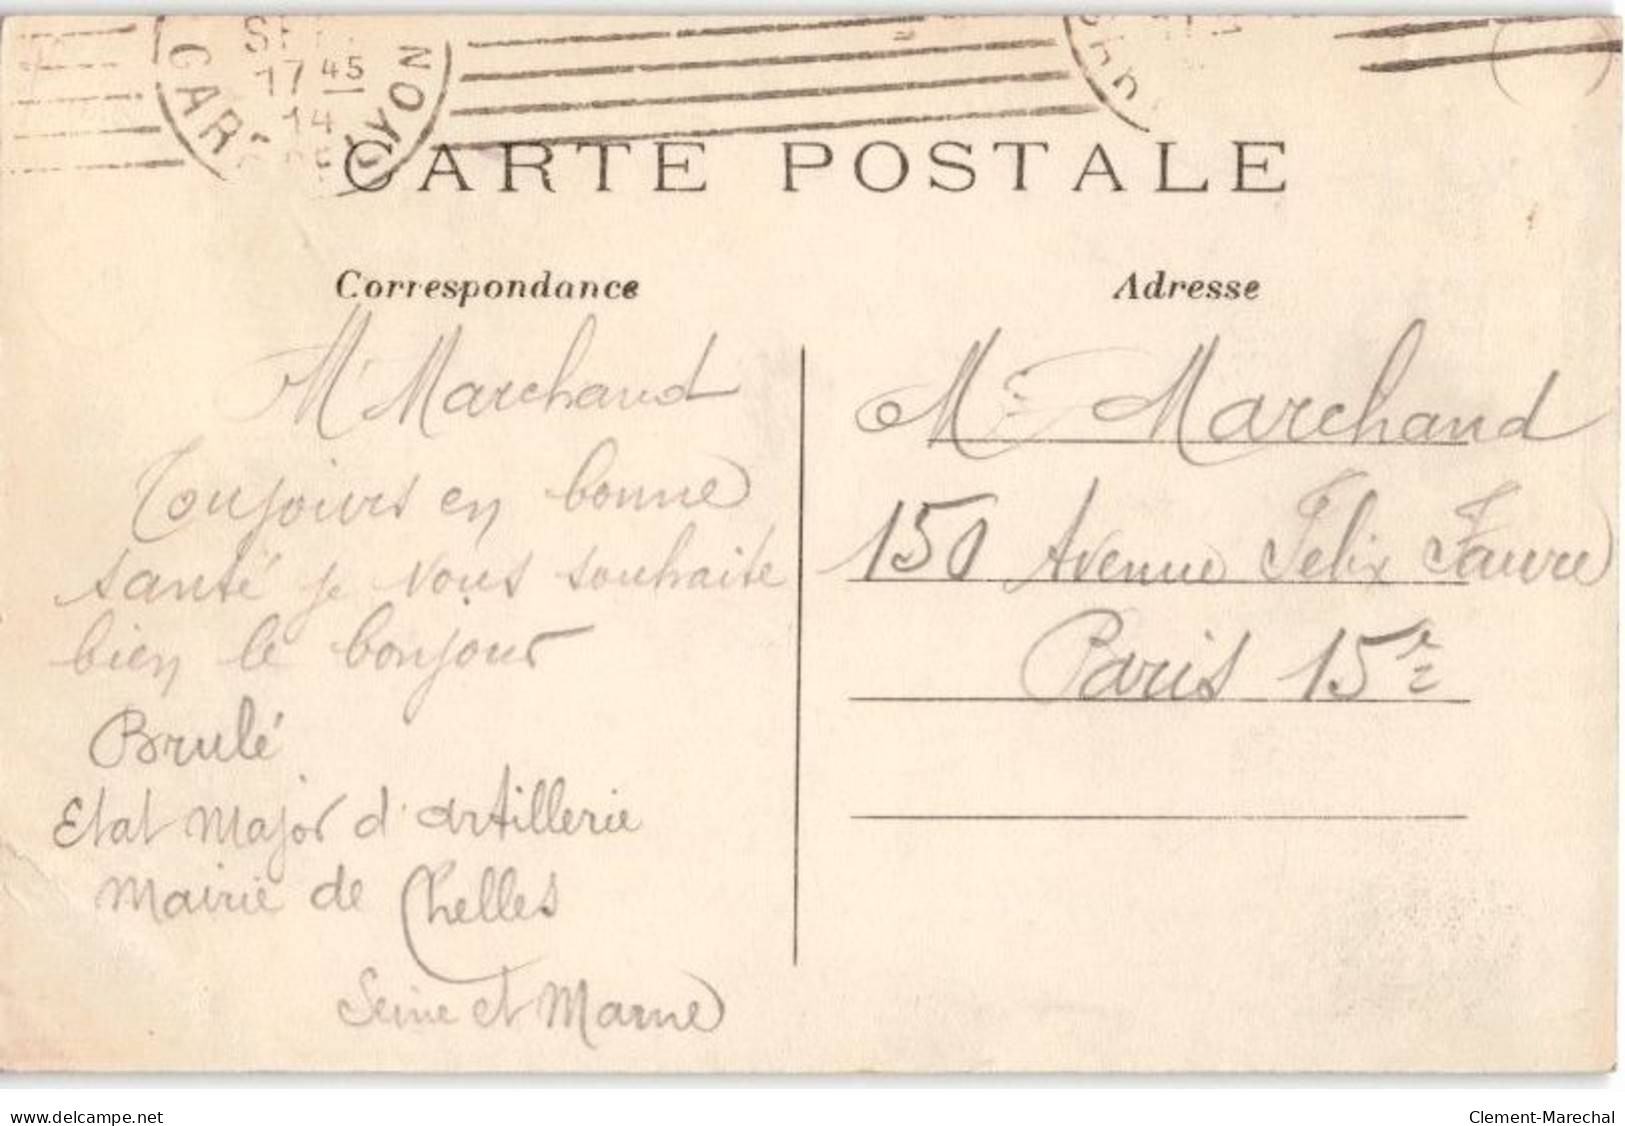 17 45
14
CARTE POSTALE
Correspondance
Mr Marchand
Toujours en bonne
santé je vous souhaite
bien le bonjour
Brulé
Etat Major d'artillerie
Mairie de Chelles
Seine et Marne
Adresse
Mr Marchand
150 Avenue Felix Faure
Paris 15e
www.delcampe.net
Clement-Marechal